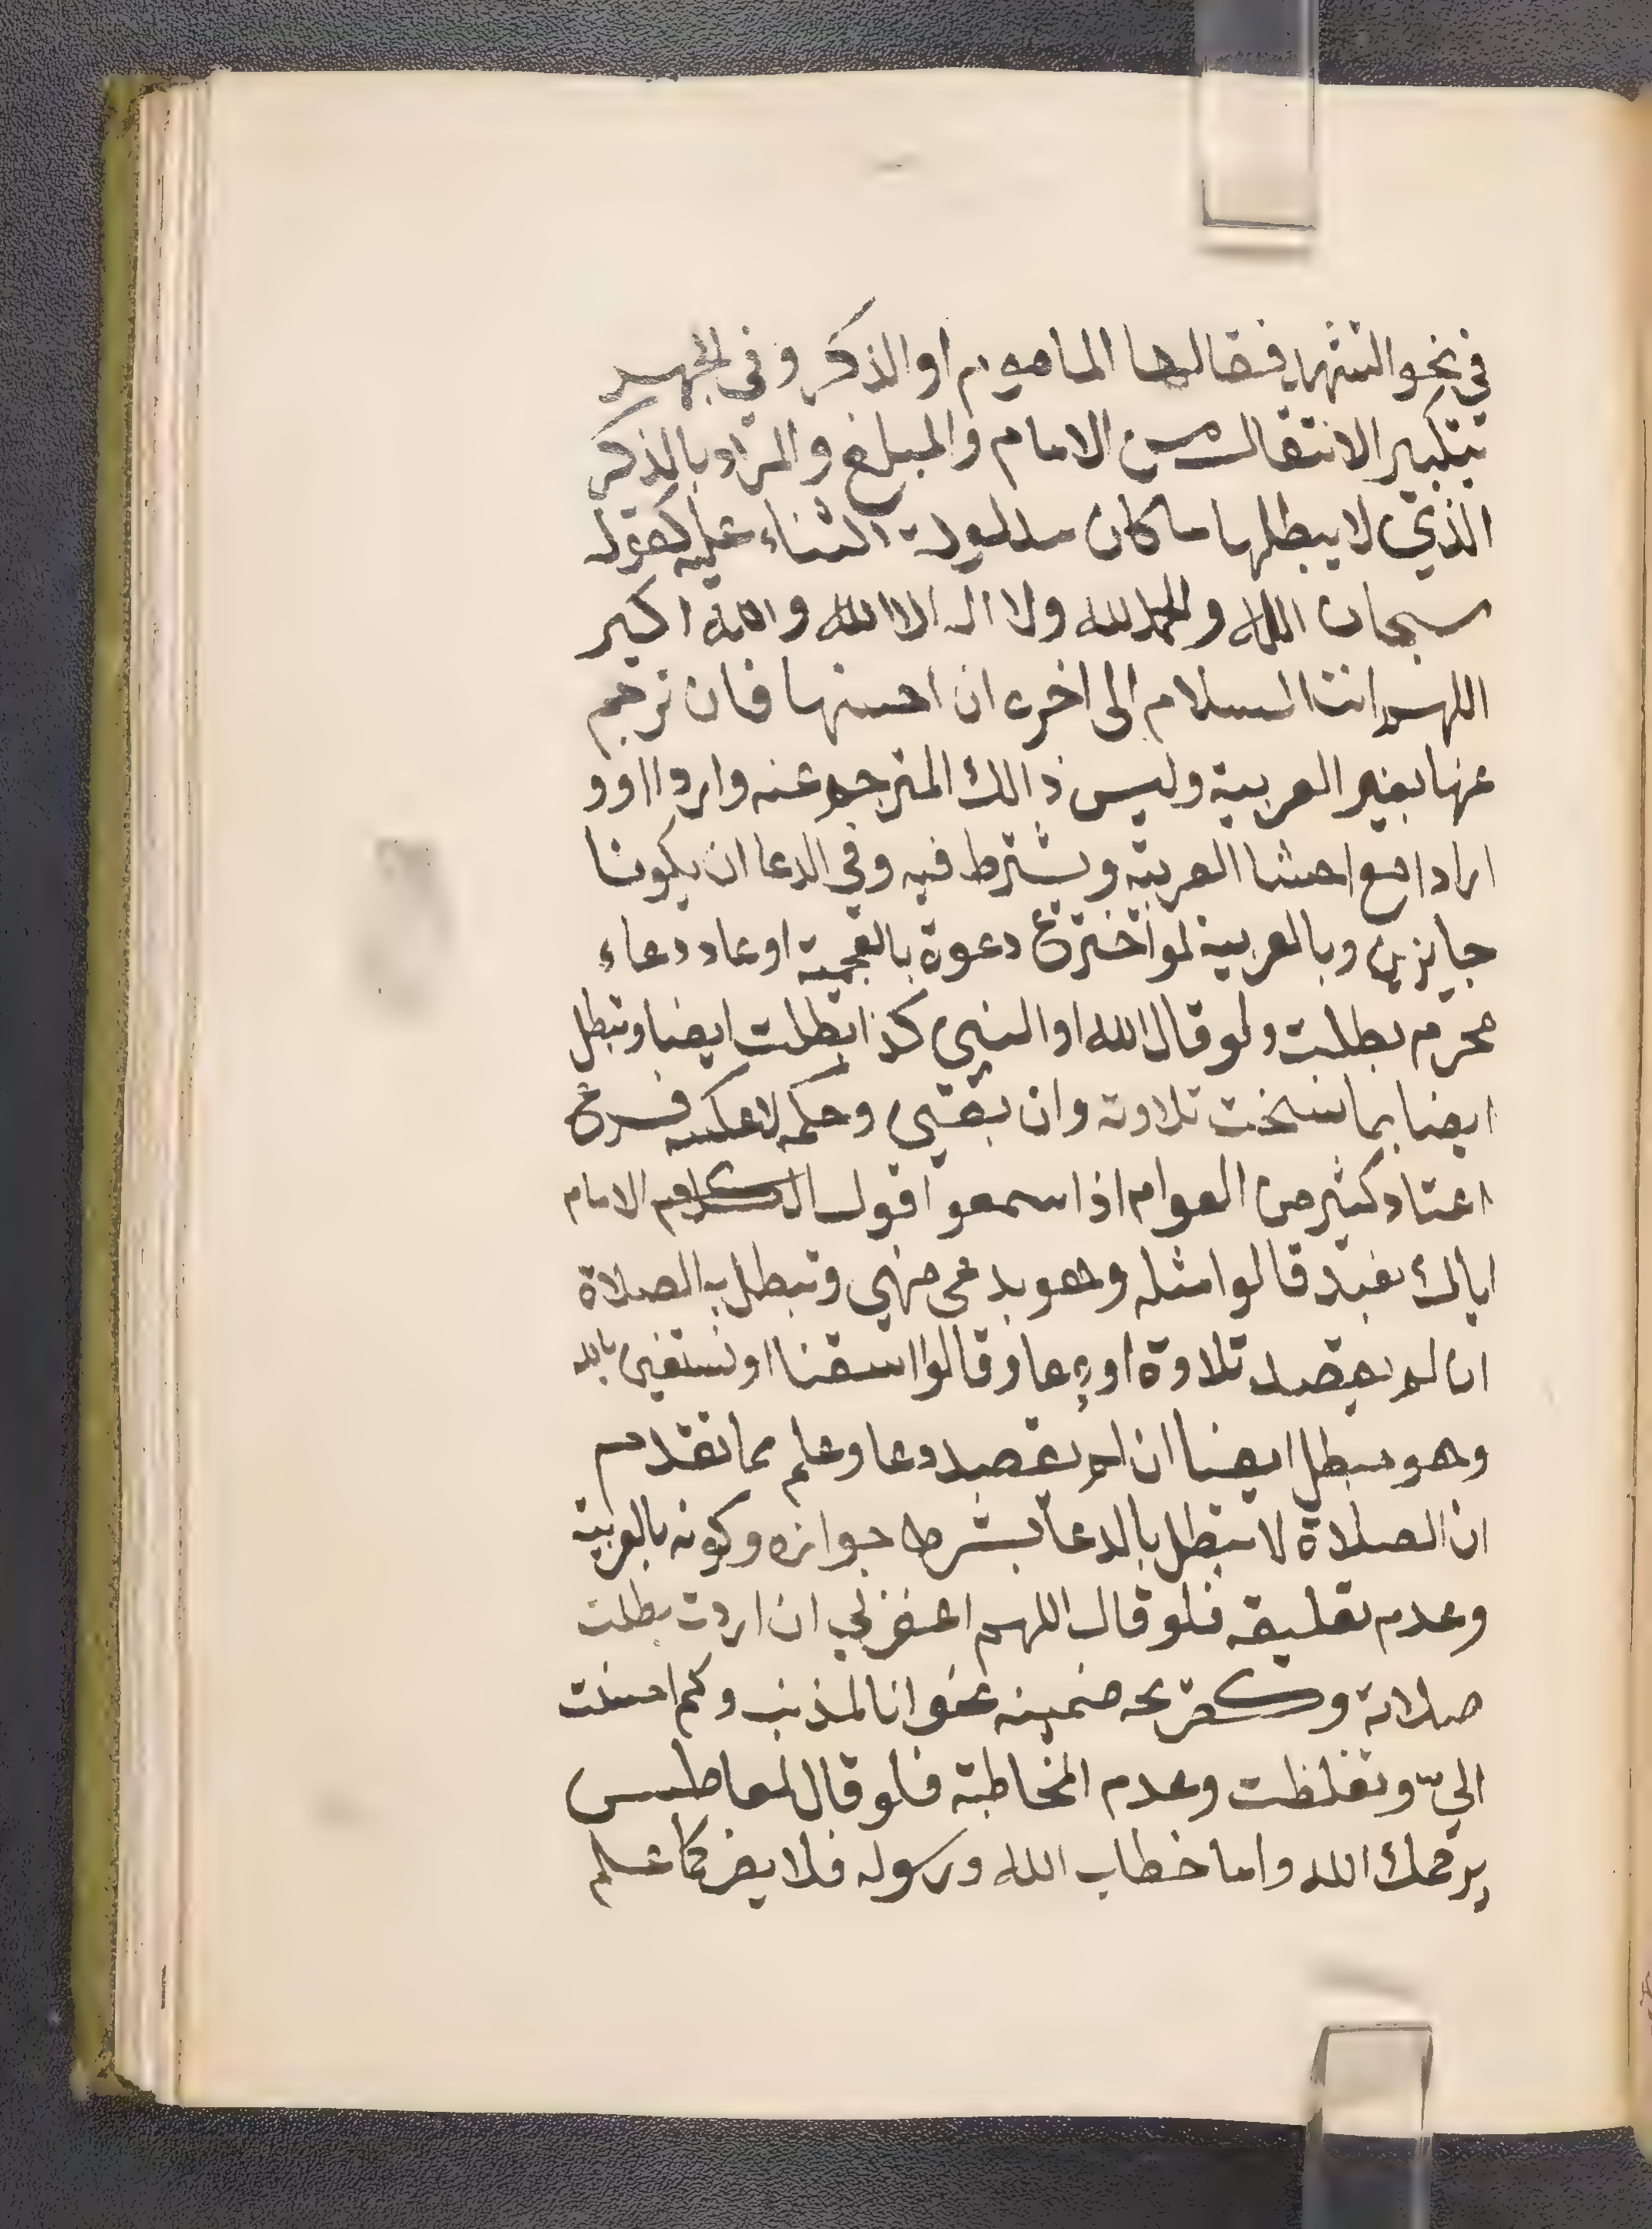 في نحو التشهد فقالها الماموم او الذكر وفي الجهر
بتكبير الانتقال من الامام والمبلغ والمراد بالذكر
الذي لا يبطلها ما كان مدلوله الثناء عليه كقوله
سبحان الله والحمد لله ولا اله الا الله والله اكبر
اللهم انت السلام الى اخره ان احسنها فان ترجم
عنها بغير العربية وليس ذالك المترجم عنه واردا او و
اراد مع احشا العربية ويشترط فيه وفي الدعا ان يكونا
جايزين وبالعربية لو اخترع دعوة بالعجمية او عاد دعاء
محرم بطلت ولو قال الله او النبي كذا بطلت ايضا وتبطل
ايضا بما نسخت تلاوته وان بقيي وحكمه لا عكسه فرع
اعتاد كثير من العوام اذا سمعوا قول الامام
اياك نعبد قالوا مثله وهو بدعى منهي وتبطل به الصلاة
ان لم يقصد تلاوة او دعا وقالوا استعنا او نستعين بالله
وهو مبطل ايضا ان لم يقصد دعا وعلم مما تقدم
ان الصلاة لا تبطل بالدعا بشرط جوازه وكونه بالعربية
وعدم تعليقه فلو قال اللهم اغفر لي ان اردت بطلت
صلاته و ضمينه عفو انا المذنب وكم احسنت
الي وتغلظت وعدم المخاطبة فلو قال لعاطس
يرحمك الله واما خطاب الله ورسوله فلا يضر كما علم